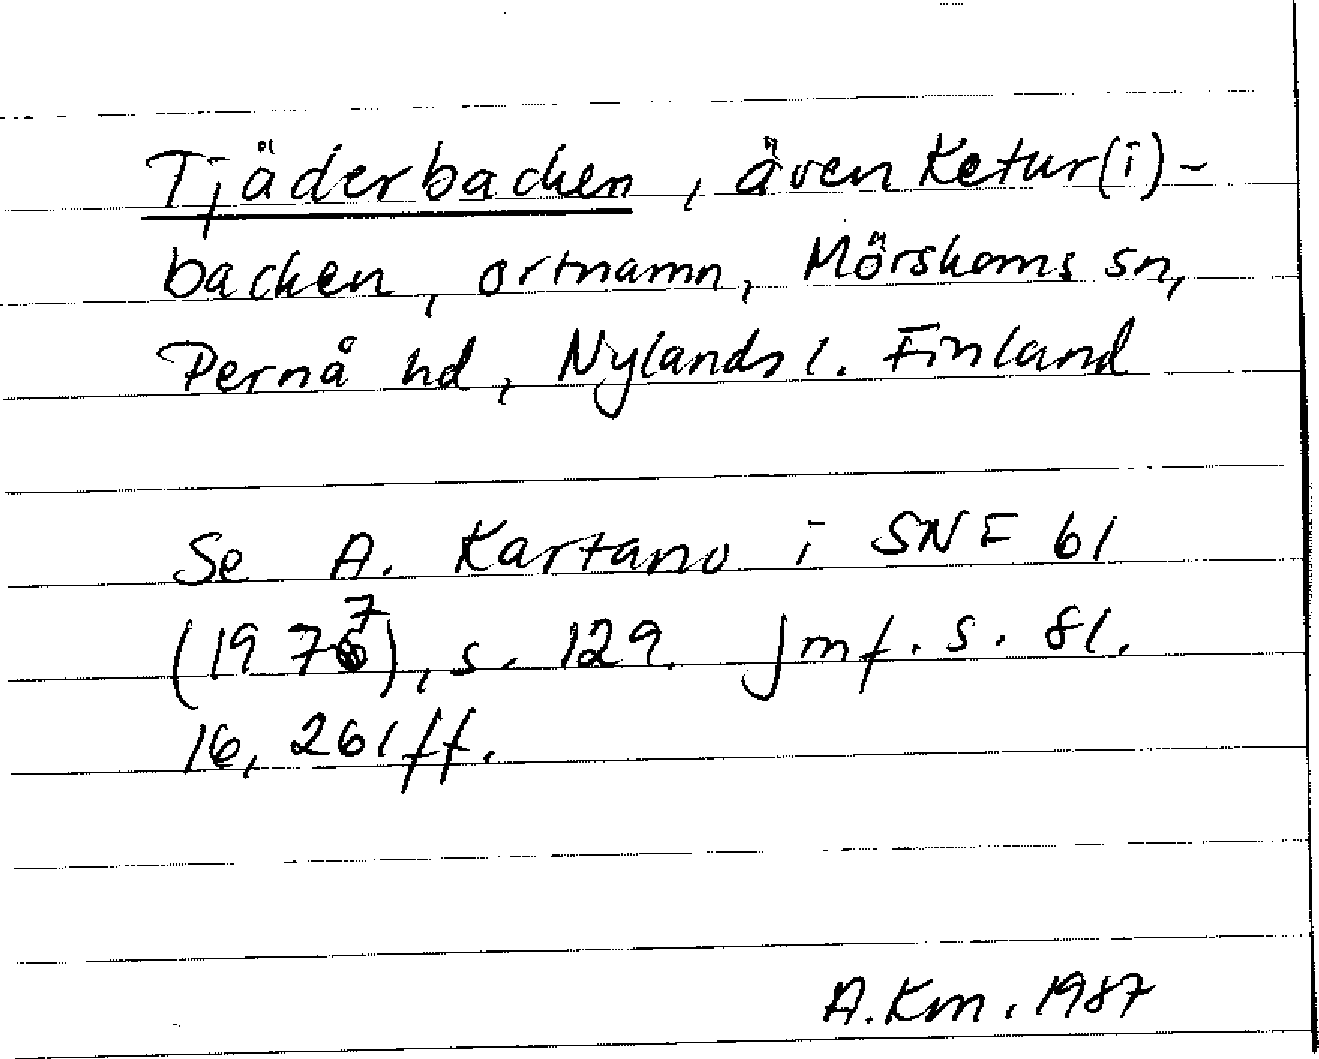 Tjäderbacken, även Ketur(i)-
backen, ortnamn, Mörskoms sn,
Pernå hd, Nylands l. Finland
Se A. Kartano i SNF 61
(1977), s. 129. Jmf. s. 81.
16, 261 ff.
A.Km. 1987